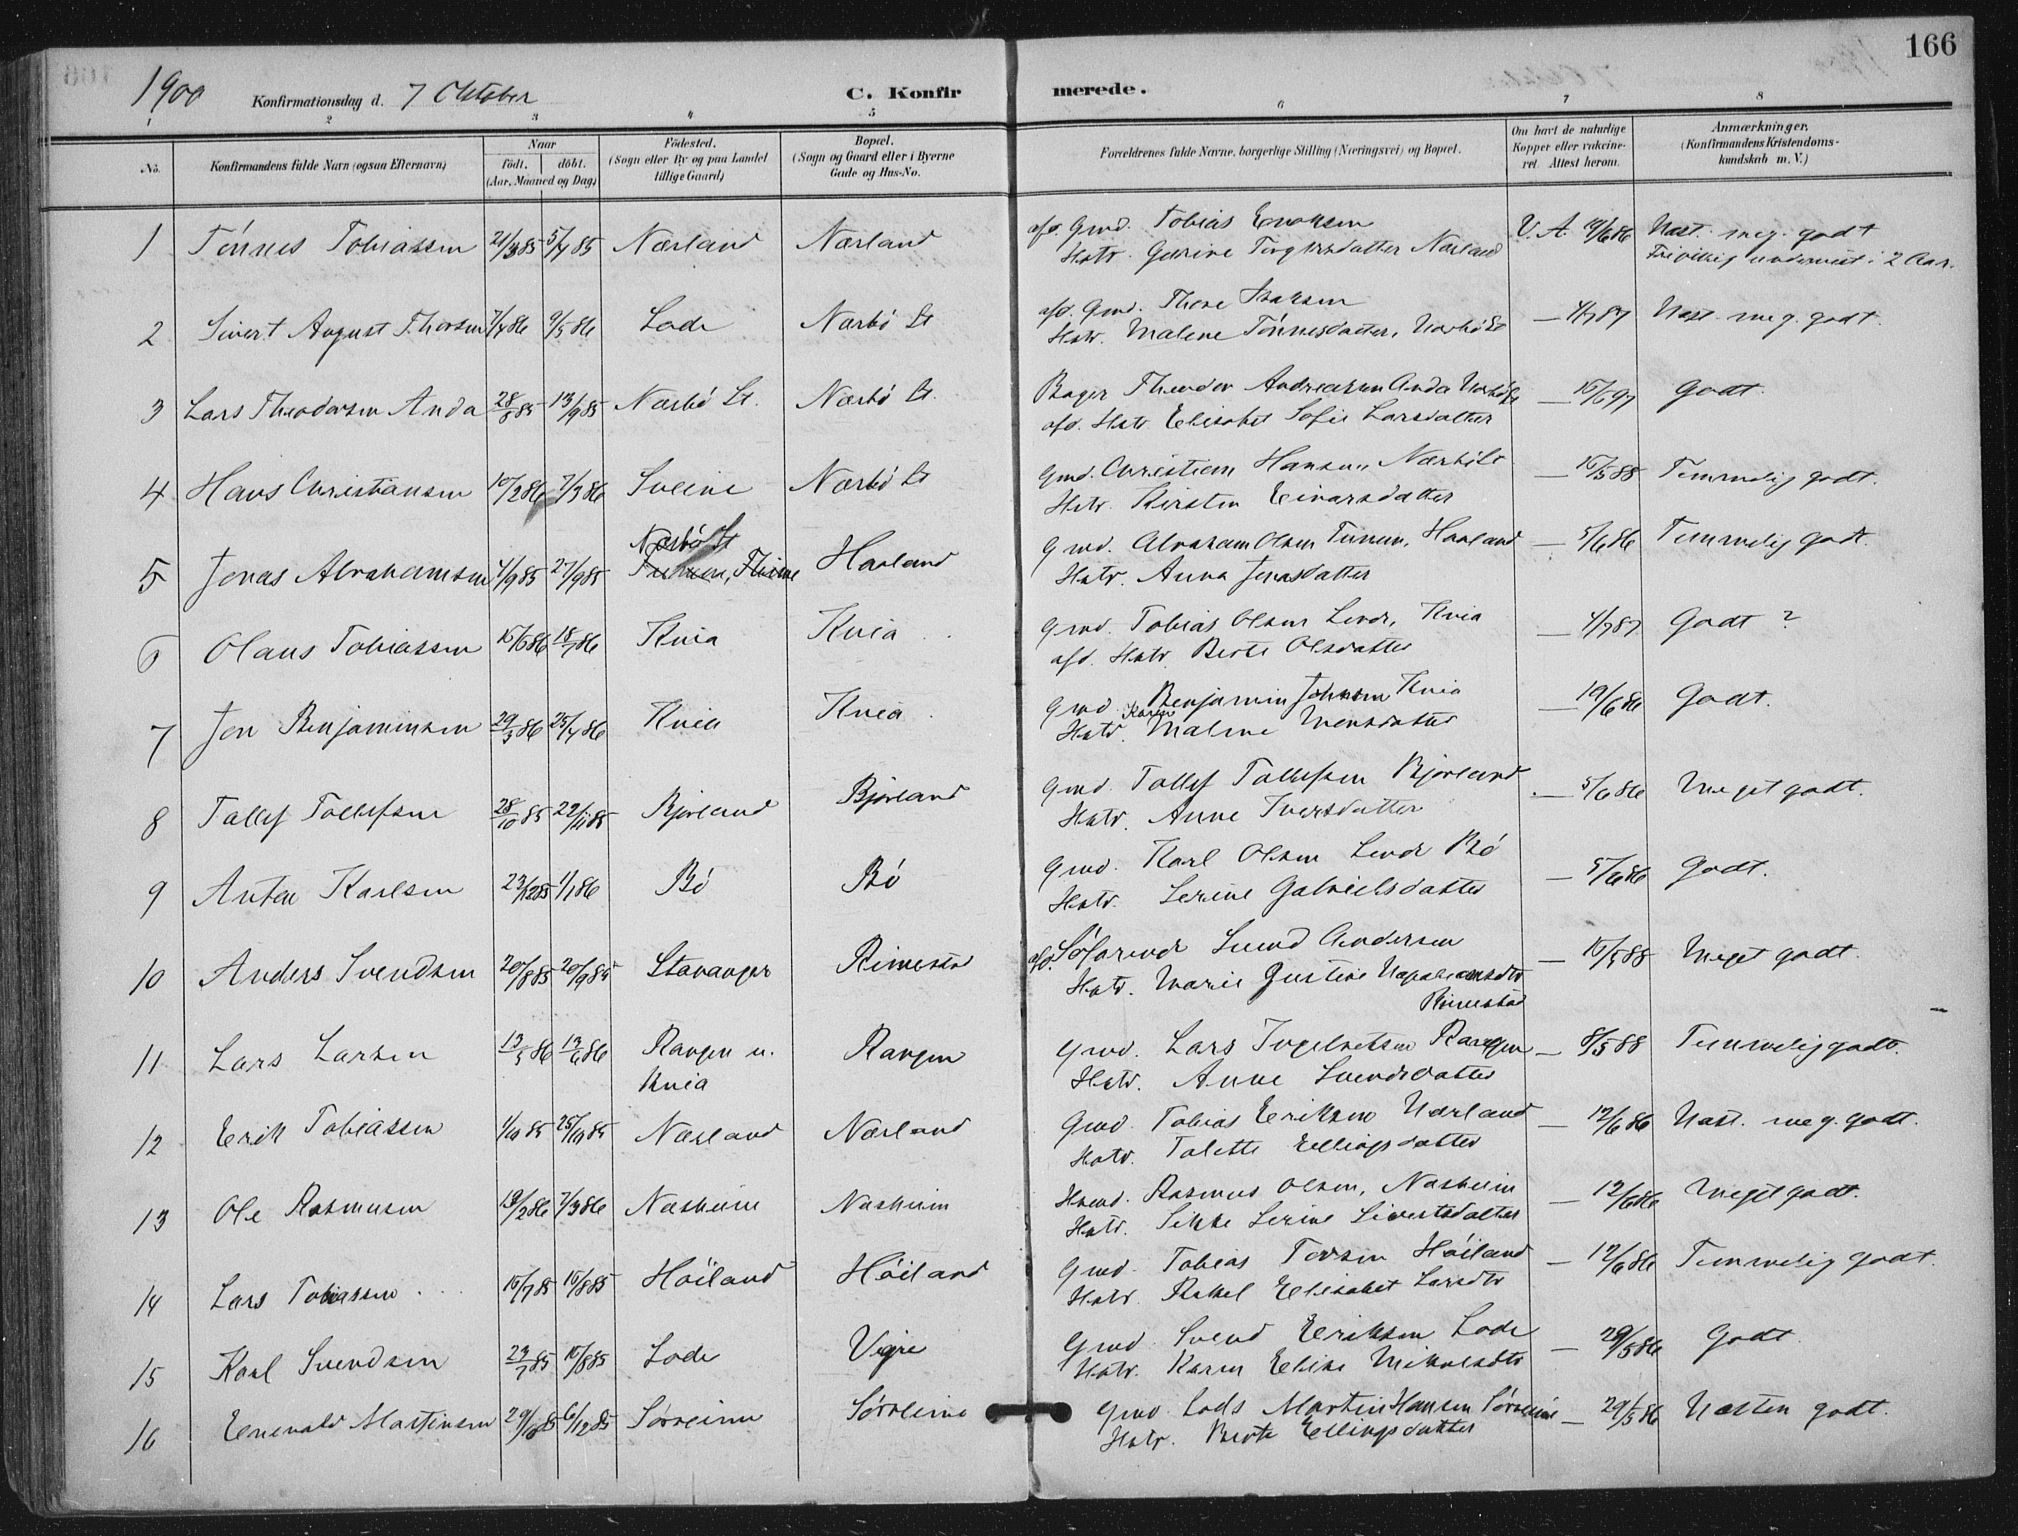 166
1900 Konfirmationsdag d. 7 Oktober C. Konfirmerede.
1 2 3 4 5 6 7 8
No. Konfirmandens fulde Navn (ogsaa Efternavn) Naar født. døbt. (Aar, Maaned og Dag) Fødested. (Sogn eller By og paa Landet tillige Gaard) Bopæl. (Sogn og Gaard eller i Byerne Gade og Hus-No. Forældrenes fulde Navne, borgerlige Stilling (Næringsvei) og Bopæl. Om havt de naturlige Kopper eller vakcineret. Attest herom. Anmærkninger. (Konfirmandens Kristendomskundskab m. V.)
1 Tónnes Tobiassen 21/3 85 5/4 85 Nærland Nærland afd. Gmd. Tobias V. A. Næst. meg. godt
Hstr. Nærland Frivillig i 2 Aar.
2 Sivert August Thorsen 7/4 86 9/5 86 Lode Nærbø St afd. Gmd. Thore Isaksen — 4/7 87 Næst. meg. godt.
Hstr. Malene Tónnesdatter, Nærbø St
3 Lars Theodorsen Anda 28/8 85 13/9 85 Nærbó St. Nærbó St. Bager Theodor Andreassen Anda Nærbø St — Godt.
afd. Hstr. Elisabet Sofie Larsdatter
4 Hans Christiansen 10/2 86 7/3 86 Nærbó St Gmd. Christian Hansen, Nærbø St — 15/5 88 Temmelig godt.
Hstr. Kirsten Einarsdatter
5 Jonas Abrahamsen 4/9 85 27/9 85 Nærbø St Haaland Gmd. Abraham Olsen Haaland — 5/6 86 Temmelig godt.
Hstr. Anna Jonasdatter
6 Olaus Tobiassen 15/6 86 18/7 86 Kvia Kvia Gmd. Tobias Olsen Kvia — 4/7 87 Godt ?
afd. Hstr. Berte Olsdatter
7 Jon Benjaminsen 29/3 86 25/4 86 Kvia Kvia Gmd. Benjamin Johnsen Kvia — 19/6 86 Godt.
Hstr. Karen Malene
8 Tollef Tollefsen 28/10 85 22/11 85 Bjorland Bjorland Gmd. Tollef Tollefsen Bjorland — 5/6 86 Meget godt.
Hstr. Anne Iversdatter
9 Anton Karlsen 23/12 85 1/1 86 Bó Bó Gmd. Karl Olsen Bó — 5/6 86 Godt.
Hstr. Serine Gabrielsdatter
10 Anders Svendsen 20/8 85 20/9 85 Stavanger Rimestad afd. Svend Andersen — 15/5 88 Meget godt.
Hstr. Marie Gustine
Rimestad
11 Lars Larsen 13/5 86 13/6 86 Rangen u. Rangen Gmd. Lars Ingebretsen Rangen — 8/5 88 Temmelig godt.
Kvia Hstr. Anne Svendsdatter
12 Erik Tobiassen 4/10 85 25/10 85 Nærland Nærland Gmd. Tobias Eriksen Nærland — 12/6 86 Næst. meg. godt.
Hstr. Talette Ellingsdatter
13 Ole Rasmusen 13/2 86 7/3 86 Nasheim Nasheim Rasmus Olsen, Nasheim — 12/6 86 Meget godt.
Hstr. Serine Sivertsdatter
14 Lars Tobiassen 15/7 85 15/8 85 Hóiland Hóiland Gmd. Tobias Torsen Hóiland — 12/6 86 Temmelig godt.
Hstr. Rakel Elisabet Larsdtr
15 Karl Svendsen 23/7 85 15/8 85 Lode Vigre Gmd. Svend Eriksen Lode — 29/5 86 Godt.
Hstr. Karen Elise
16 Enevald Martinsen 29/10 85 6/12 85 Sórreime Sórreime Gmd. Lods Martin Hansen Sórreime — 29/5 86 Næsten godt.
Hstr. Berte Ellingsdatter